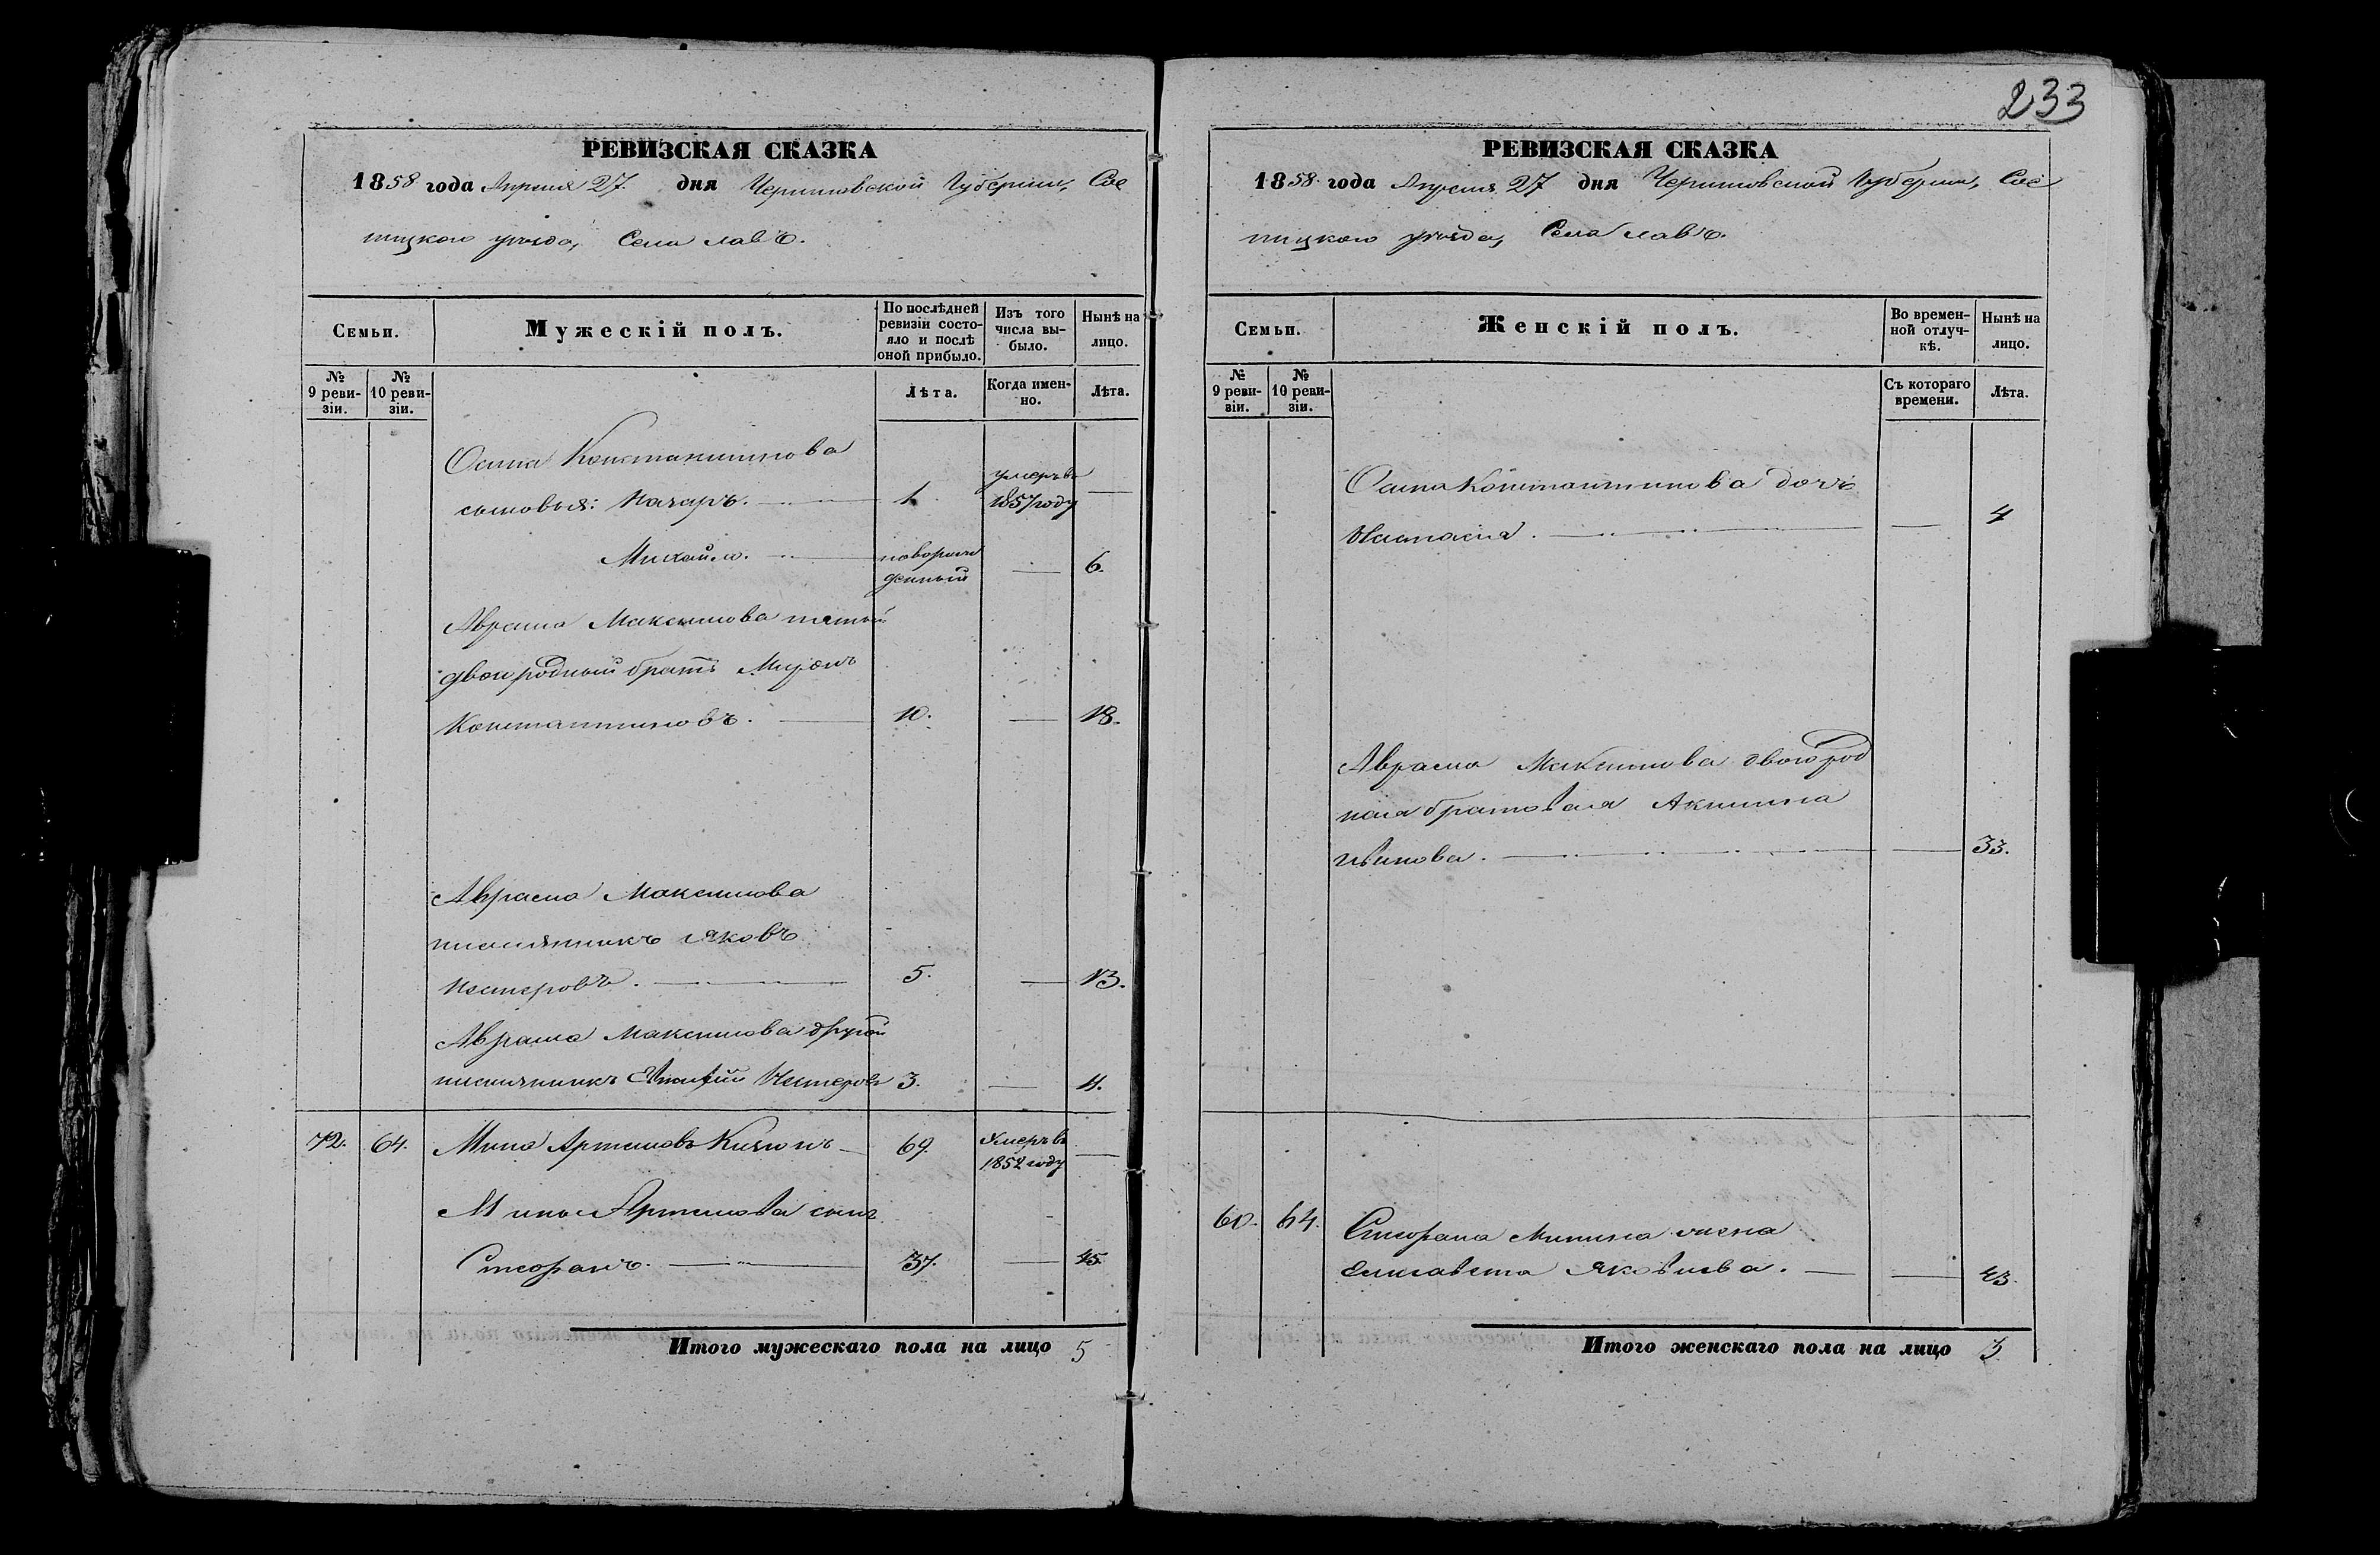 233
РЕВИЗСКАЯ СКАЗКА
1858 года Апреля 27. дня Черниговской Губернии, Сос
ницкого уезда, Села Лавъ.
Семьи.
Мужескій полъ.
По послѣдней ревизіи состояло и послѣ оной прибыло.
Изъ того числа выбыло.
Нынѣ на лицо.
№ 9 ревизіи.
№ 10 ревизіи.
Лѣта.
Когда именно.
Лѣта.
Осипа Константинова
сыновья: Назаръ. 1. умеръ въ 1857 году
Михайло. новорожденный 6.
Аврама Максимова пятый
двоюродный братъ Миронъ
Константиновъ. 10. 18.
Аврама Максимова
племянникъ Яковъ
Нестеровъ. 5. 13.
Аврама Максимова другой
племянникъ Нестеровъ 3. 11.
72. 64. Мина Артемовъ 69. Умеръ въ 1852 году
Мины Артемова сынъ
Стефанъ. 37. 45.
Итого мужескаго пола на лицо 5
РЕВИЗСКАЯ СКАЗКА
1858 года Апреля 27 дня Черниговской Губернии, Сос
ницкого уезда, Села Лавъ.
Семьи.
Женскій полъ.
Во временной отлучкѣ.
Нынѣ на лицо.
№ 9 ревизіи.
№ 10 ревизіи.
Съ котораго времени.
Лѣта.
Осипа Константинова дочь
Настасия. 4
Аврама Максимова двоюрод
ная братовая Акилина
33.
60. 64. Стефана Минина жена
Елисавета Яковлева. 43.
Итого женскаго пола на лицо 3